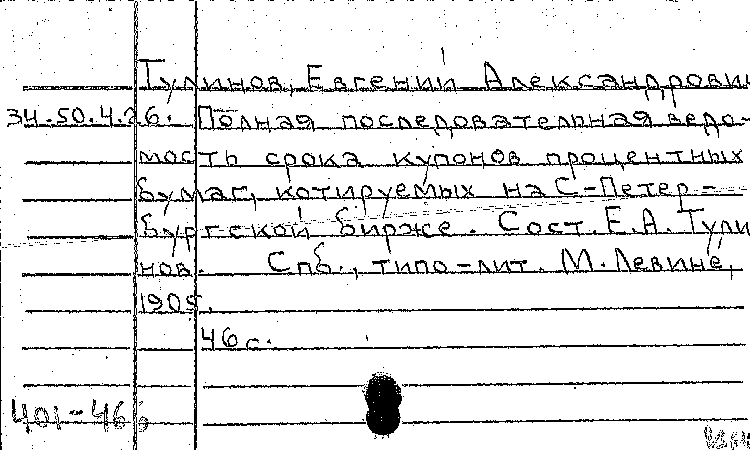 Тулинов, Евгений Александрович
34.50.4.26. Полная последовательная ведо-
мость срока купонов процентных
бумаг, котируемых на С-Петер-
бургской бирже. Сост. Е.А. Тули
нов. Спб., типо-лит. М. Левине,
1905.
46 с.
401-46б